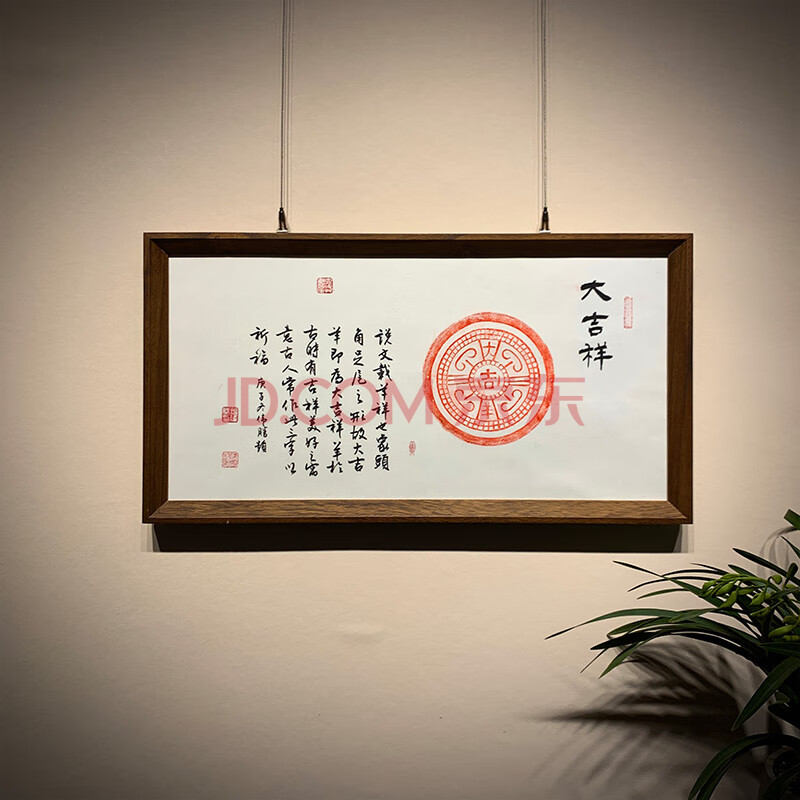 大吉祥
说文载羊祥也象頭
角足尾之形故大吉
羊即為大吉祥羊於
古時有吉祥美好之寓
意古人常作此三字以
祈福
庚子冬
JD.COM 京东